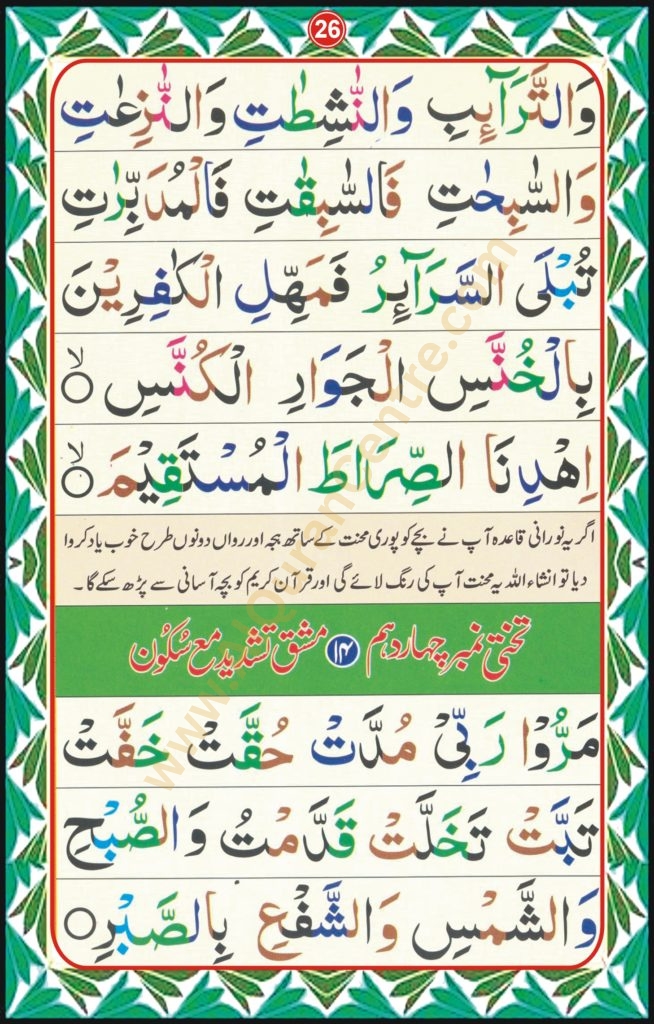 26
وَالتَّرَآئِبِ وَالنّٰشِطٰتِ وَالنّٰزِعٰتِ
وَالسّٰبِحٰتِ فَالسّٰبِقٰتِ فَالْمُدَبِّرٰتِ
تُبْلَى السَّرَآئِرُ فَمَهِّلِ الْكٰفِرِيْنَ
بِالْخُنَّسِ الْجَوَارِ الْكُنَّسِ ۙ○
اِهْدِنَا الصِّرَاطَ الْمُسْتَقِيْمَ ۙ○
اگر یہ نورانی قاعدہ آپ نے بچے کو پوری محنت کے ساتھ ہجہ اور رواں دونوں طرح خوب یاد کروا
دیا تو انشاء اللہ یہ محنت آپ کی رنگ لائے گی اور قرآن کریم کو بچہ آسانی سے پڑھ سکے گا۔
تختی نمبر چہاردہم ۱۴ مشق تشدید مع سکون
مَرُّوْا رَبِّىْ مُدَّتْ حُقَّتْ خَفَّتْ
تَبَّتْ تَخَلَّتْ قَدَّمْتُ وَالصُّبْحِ
وَالشَّمْسِ وَالشَّفْعِ بِالصَّبْرِ○
www.QuranCentre.com